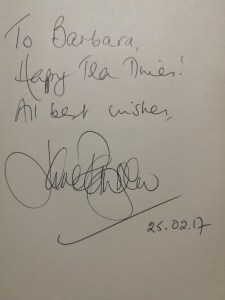 To Barbara,
Happy Tea Times!
All best wishes,
25.02.17